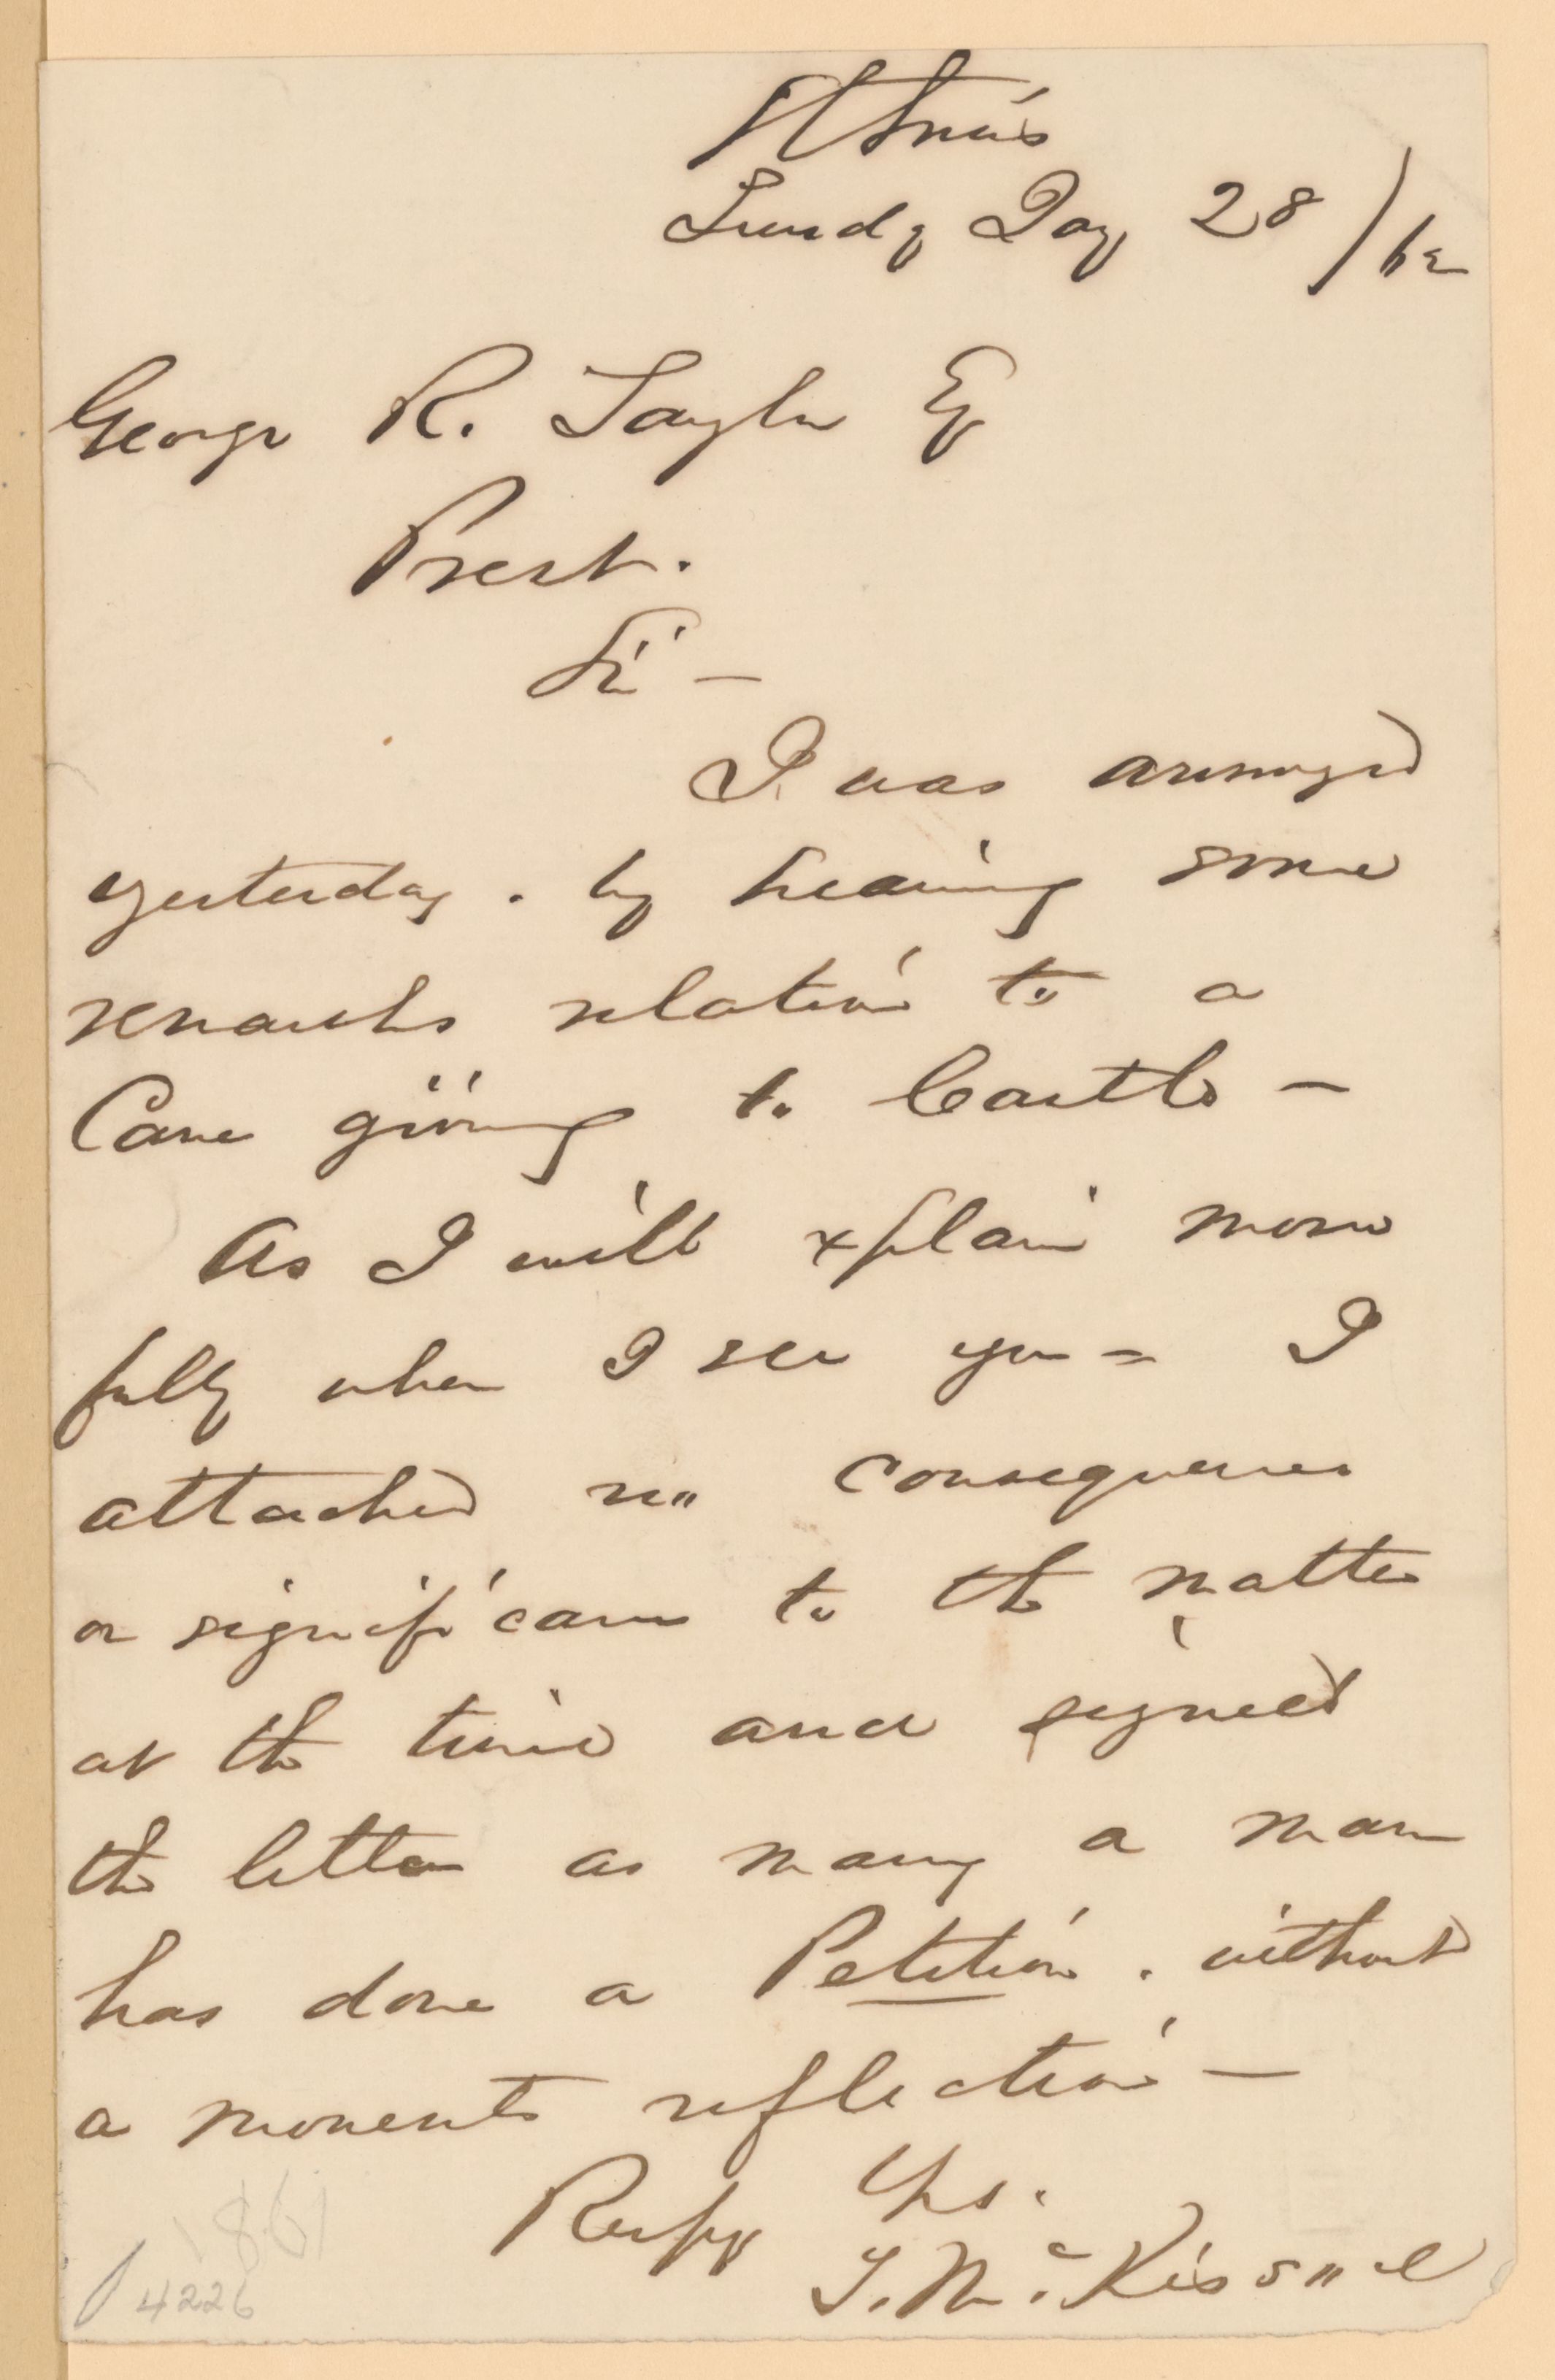 St Louis
Sundy Day 28/62
George R. Taylor Esq
Prest.
Sir —
I was annoyed
yesterday . by hearing some
remarks relation to a
Cane giving to Castle —
As I will xplain more
fully when I see you = I
attached no consequence
or significance to the matter
at the time and signed
the letter as many a man
has done a Petition . without
a moments reflection —
Respy Yrs.
T. Mc. Kissock
1861
4226